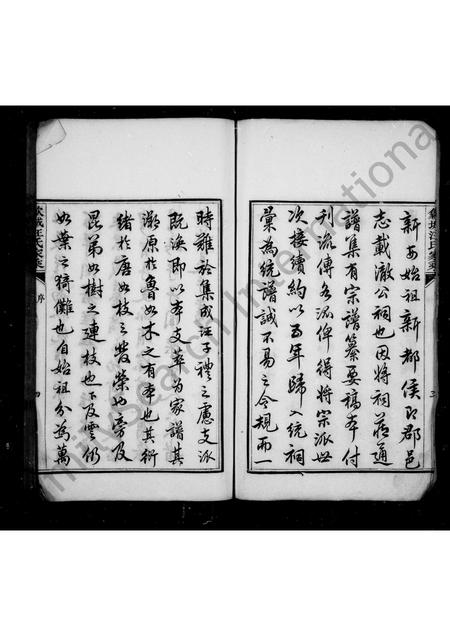 新安始祖新都侯即郡邑
志載澈公祠也因將祠藏通
譜集有宗譜纂要稿本付
刊流傳各派俾得將宗派世
次接續約以五年歸入統祠
彙為統譜誠不易之令規而一
時難於集成汪子禮之慮支派
既渙即以本支萃為家譜其
溯原於魯如木之有本也其衍
緒於唐如枝之發榮也旁及
昆弟如樹之連枝也下及雲仍
如葉之猗儺也自始祖分為萬
序